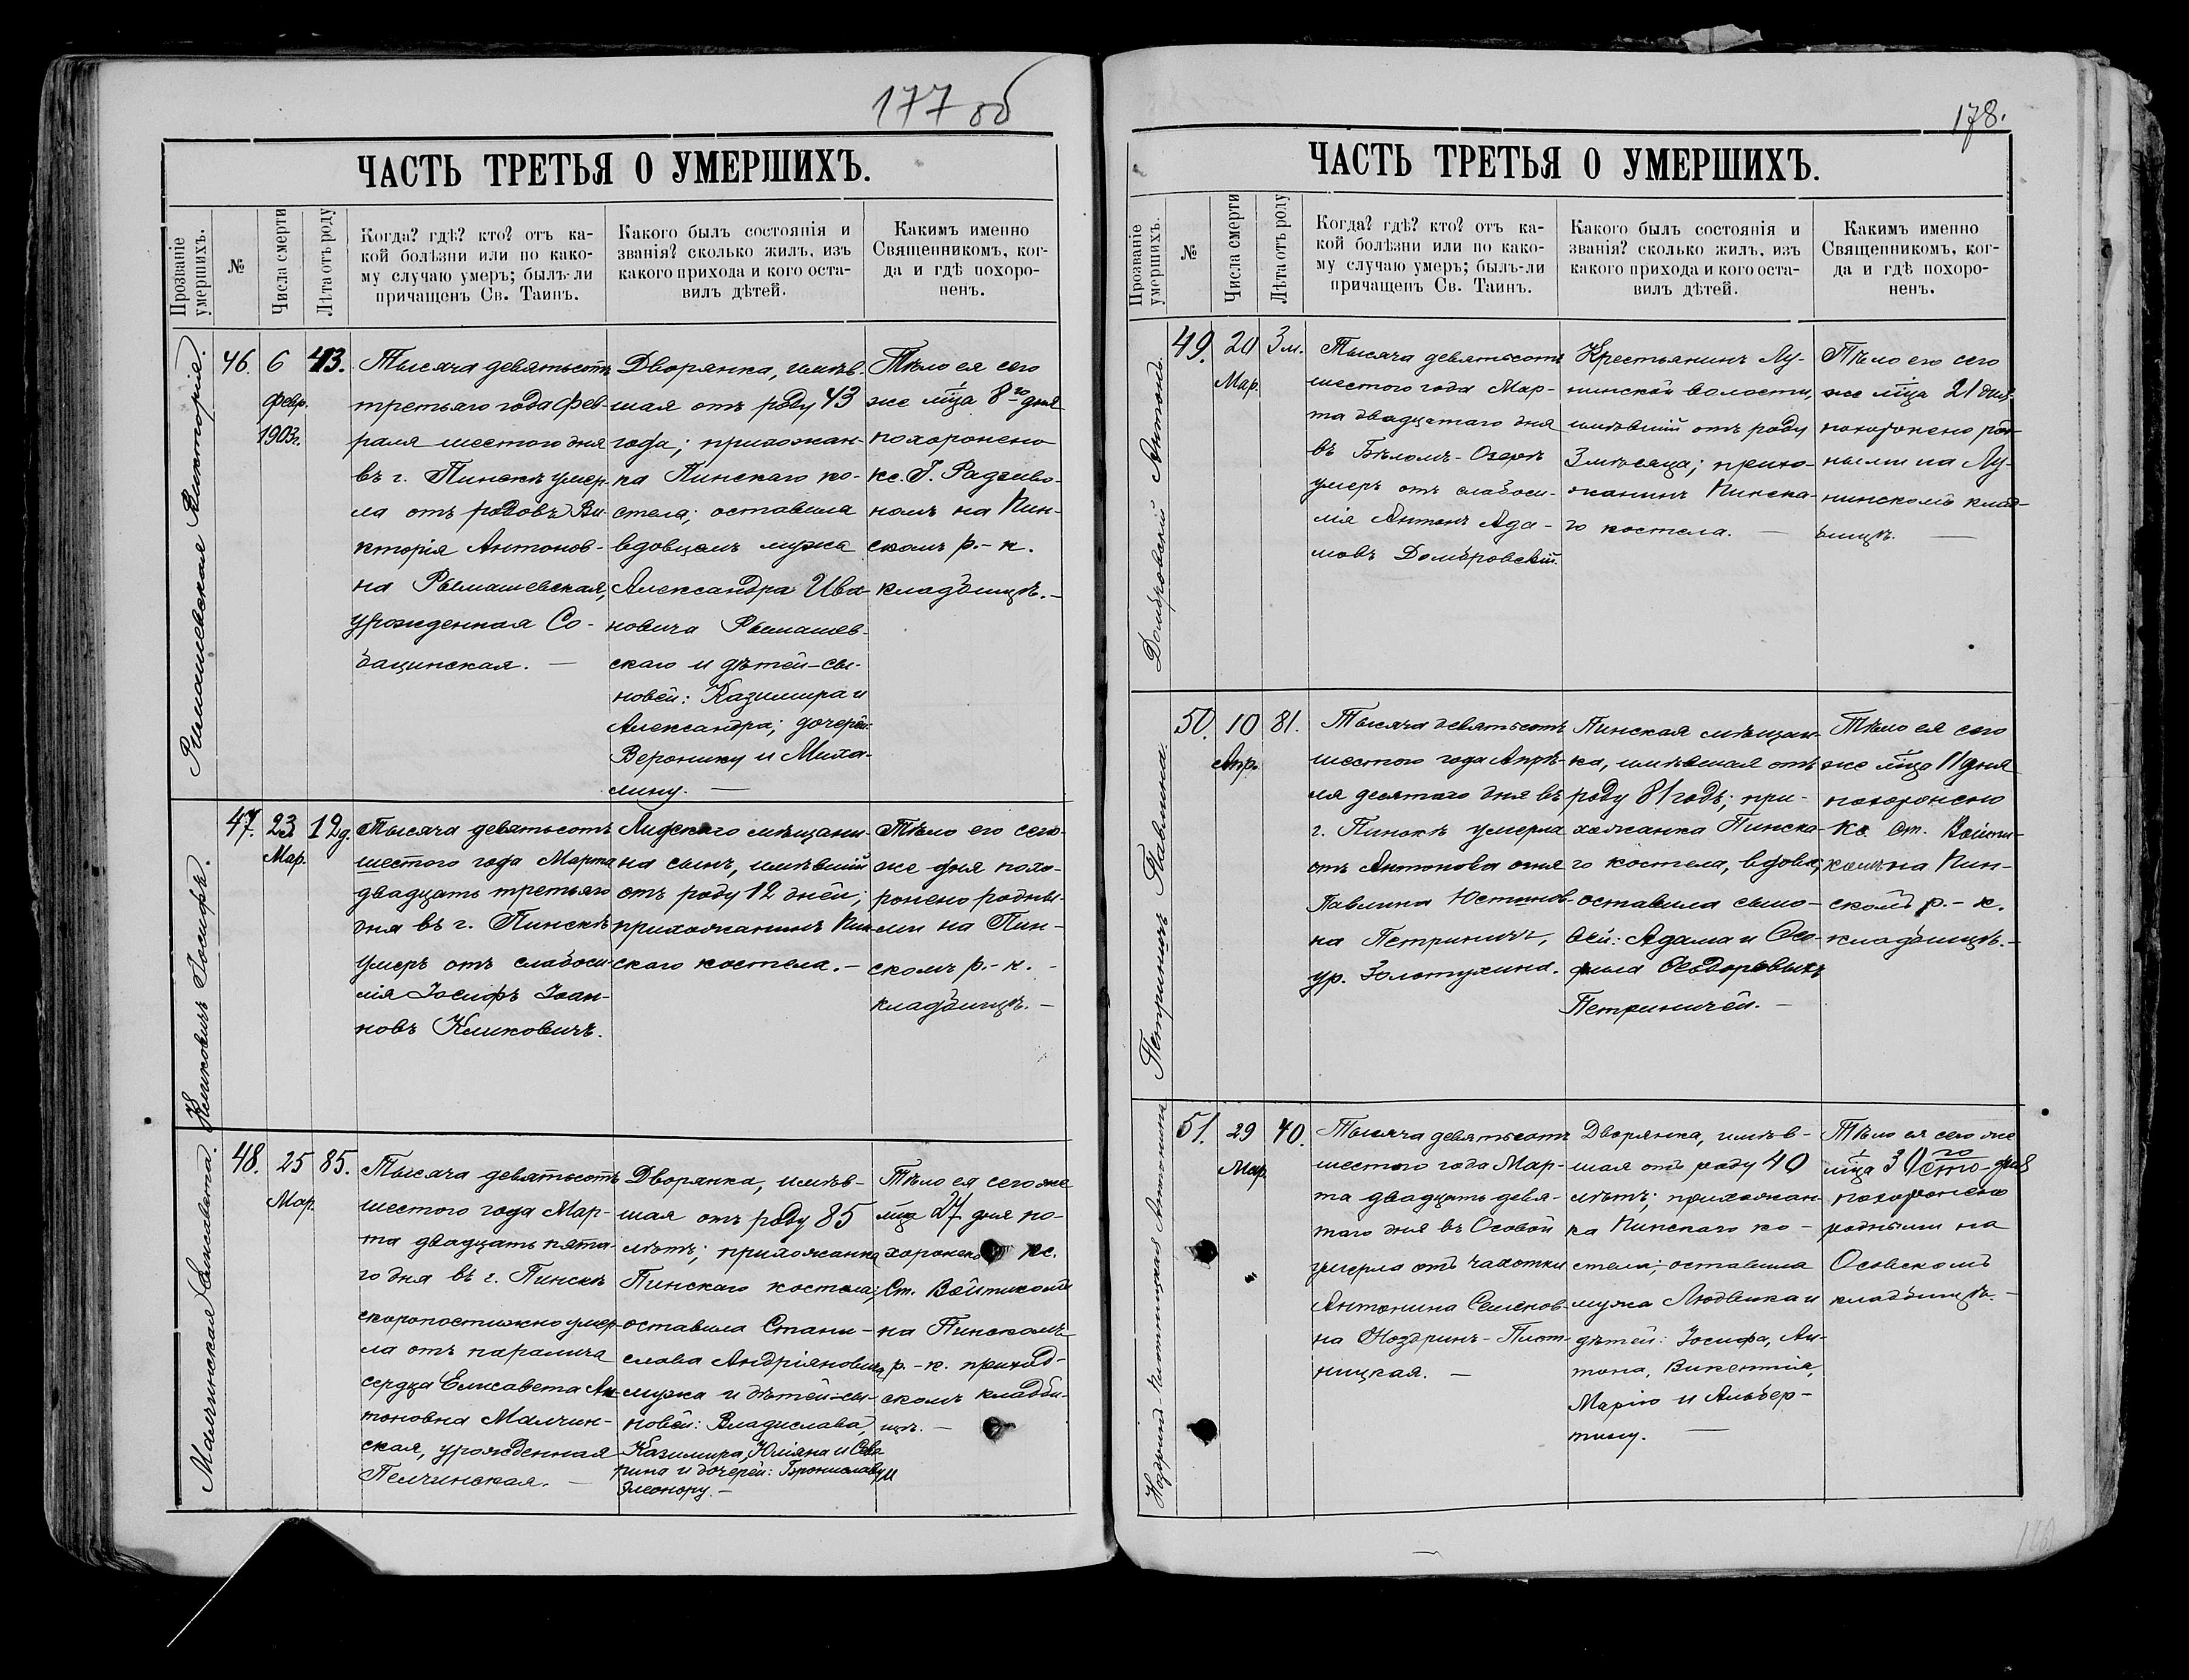 177 об
ЧАСТЬ ТРЕТЬЯ О УМЕРШИХЪ.
Прозваніе умершихъ.
№
Числа смерти
Лѣта отъ роду
Когда? гдѣ? кто? отъ ка-
кой болѣзни или по како-
му случаю умеръ; былъ-ли
причащенъ Св. Таинъ.
Какого былъ состоянія и
званія? сколько жилъ, изъ
какого прихода и кого оста-
вилъ дѣтей.
Какимъ именно
Священникомъ, ког-
да и гдѣ похоро-
ненъ.
Рымашевская Викторія.
46.
6
Февр.
1903г.
43.
Тысяча девятьсотъ
третьяго года Фев-
раля шестого дня
въ г. Пинскѣ умер-
ла отъ родовъ Ви-
кторія Антонов-
на Рымашевская,
урожденная Со-
бацинская. —
Дворянка, имѣв-
шая отъ роду 43
года; прихожан-
ка Пинскаго ко-
стела; оставила
вдовцомъ мужа
Александра Ива-
новича Рымашев-
скаго и дѣтей-сы-
новей: Казимира и
Александра; дочерей:
Веронику и Миха-
лину. —
Тѣло ея сего
же мца 8го дня
похоронено
кс. Г. Радзиво-
номъ на Пин-
скомъ р.-к.
кладбищѣ. —
Климовичъ Іосифъ.
47.
23
Мар.
12 д.
Тысяча девятьсотъ
шестого года Марта
двадцать третьяго
дня въ г. Пинскѣ
умеръ отъ слабоси-
лія Іосифъ Іоан-
новъ Климовичъ.
Лидскаго мѣщани-
на сынъ, имѣвшій
отъ роду 12 дней;
прихожанинъ Пин-
скаго костела. —
Тѣло его сего-
же дня похо-
ронено родны-
ми на Пин-
скомъ р.-к. -
кладбищѣ. —
Малчинская Елисавета.
48.
25
Мар.
85.
Тысяча девятьсотъ
шестого года Мар-
та двадцать пята-
го дня въ г. Пинскѣ
скоропостижно умер-
ла отъ паралича
сердца Елисавета Ан-
тоновна Малчин-
ская, урожденная
Пелчинская. —
Дворянка, имѣв-
шая отъ роду 85
лѣтъ; прихожанка
Пинскаго костела;
оставила Стани-
слава Андріяновича
мужа и дѣтей-сы-
новей: Владислава,
Казимира, Юліяна и Севе-
рина и дочерей: Брониславу и
Элеонору. —
Тѣло ея сего же
мца 27 дня по-
хоронено кс.
Ст. Войтикомъ
на Пинскомъ
р.-к. приход-
скомъ кладби-
щѣ. —
178.
ЧАСТЬ ТРЕТЬЯ О УМЕРШИХЪ.
Прозваніе умершихъ.
№
Числа смерти
Лѣта отъ роду
Когда? гдѣ? кто? отъ ка-
кой болѣзни или по како-
му случаю умеръ; былъ-ли
причащенъ Св. Таинъ.
Какого былъ состоянія и
званія? сколько жилъ, изъ
какого прихода и кого оста-
вилъ дѣтей.
Какимъ именно
Священникомъ, ког-
да и гдѣ похоро-
ненъ.
Домбровскій Антонъ.
49.
20
Мар.
3 м.
Тысяча девятьсотъ
шестого года Мар-
та двадцатаго дня
въ Бѣломъ-Озерѣ
умеръ отъ слабоси-
лія Антонъ Ада-
мовъ Домбровскій.
Крестьянинъ Лу-
нинской волости,
имѣвшій отъ роду
3 мѣсяца; прихо-
жанинъ Пинска-
го костела. —
Тѣло его сего
же мца 21 дня
похоронено род-
ными на Лу-
нинскомъ клад-
бищѣ. —
Петриничъ Павлина.
50.
10
Апр.
81.
Тысяча девятьсотъ
шестого года Апрѣ-
ля десятаго дня въ
г. Пинскѣ умерла
отъ Антонова огня
Павлина Юстинов-
на Петриничъ,
ур. Золотухина.
Пинская мѣщан-
ка, имѣвшая отъ
роду 81 годъ; при-
хожанка Пинска-
го костела, вдова;
оставила сыно-
вей: Адама и Ѳео-
фила Ѳеодоровыхъ
Петриничей. —
Тѣло ея сего
же мца 11 дня
похоронено
кс. Ст. Войти-
комъ на Пин-
скомъ р.-к.
кладбищѣ. —
Ноздринъ-Плотницкая Антонина
51.
29
Мар.
40.
Тысяча девятьсотъ
шестого года Мар-
та двадцать девя-
таго дня въ Особой
умерла отъ чахотки
Антонина Семенов-
на Ноздринъ-Плот-
ницкая. —
Дворянка, имѣв-
шая отъ роду 40
лѣтъ; прихожан-
ка Пинскаго ко-
стела; оставила
мужа Людвика и
дѣтей: Іосифа, Ан-
тона, Викентія,
Марію и Альбер-
тину. —
Тѣло ея сего же
мца 30го дня
похоронено
родными на
Осовскомъ
кладбищѣ. —